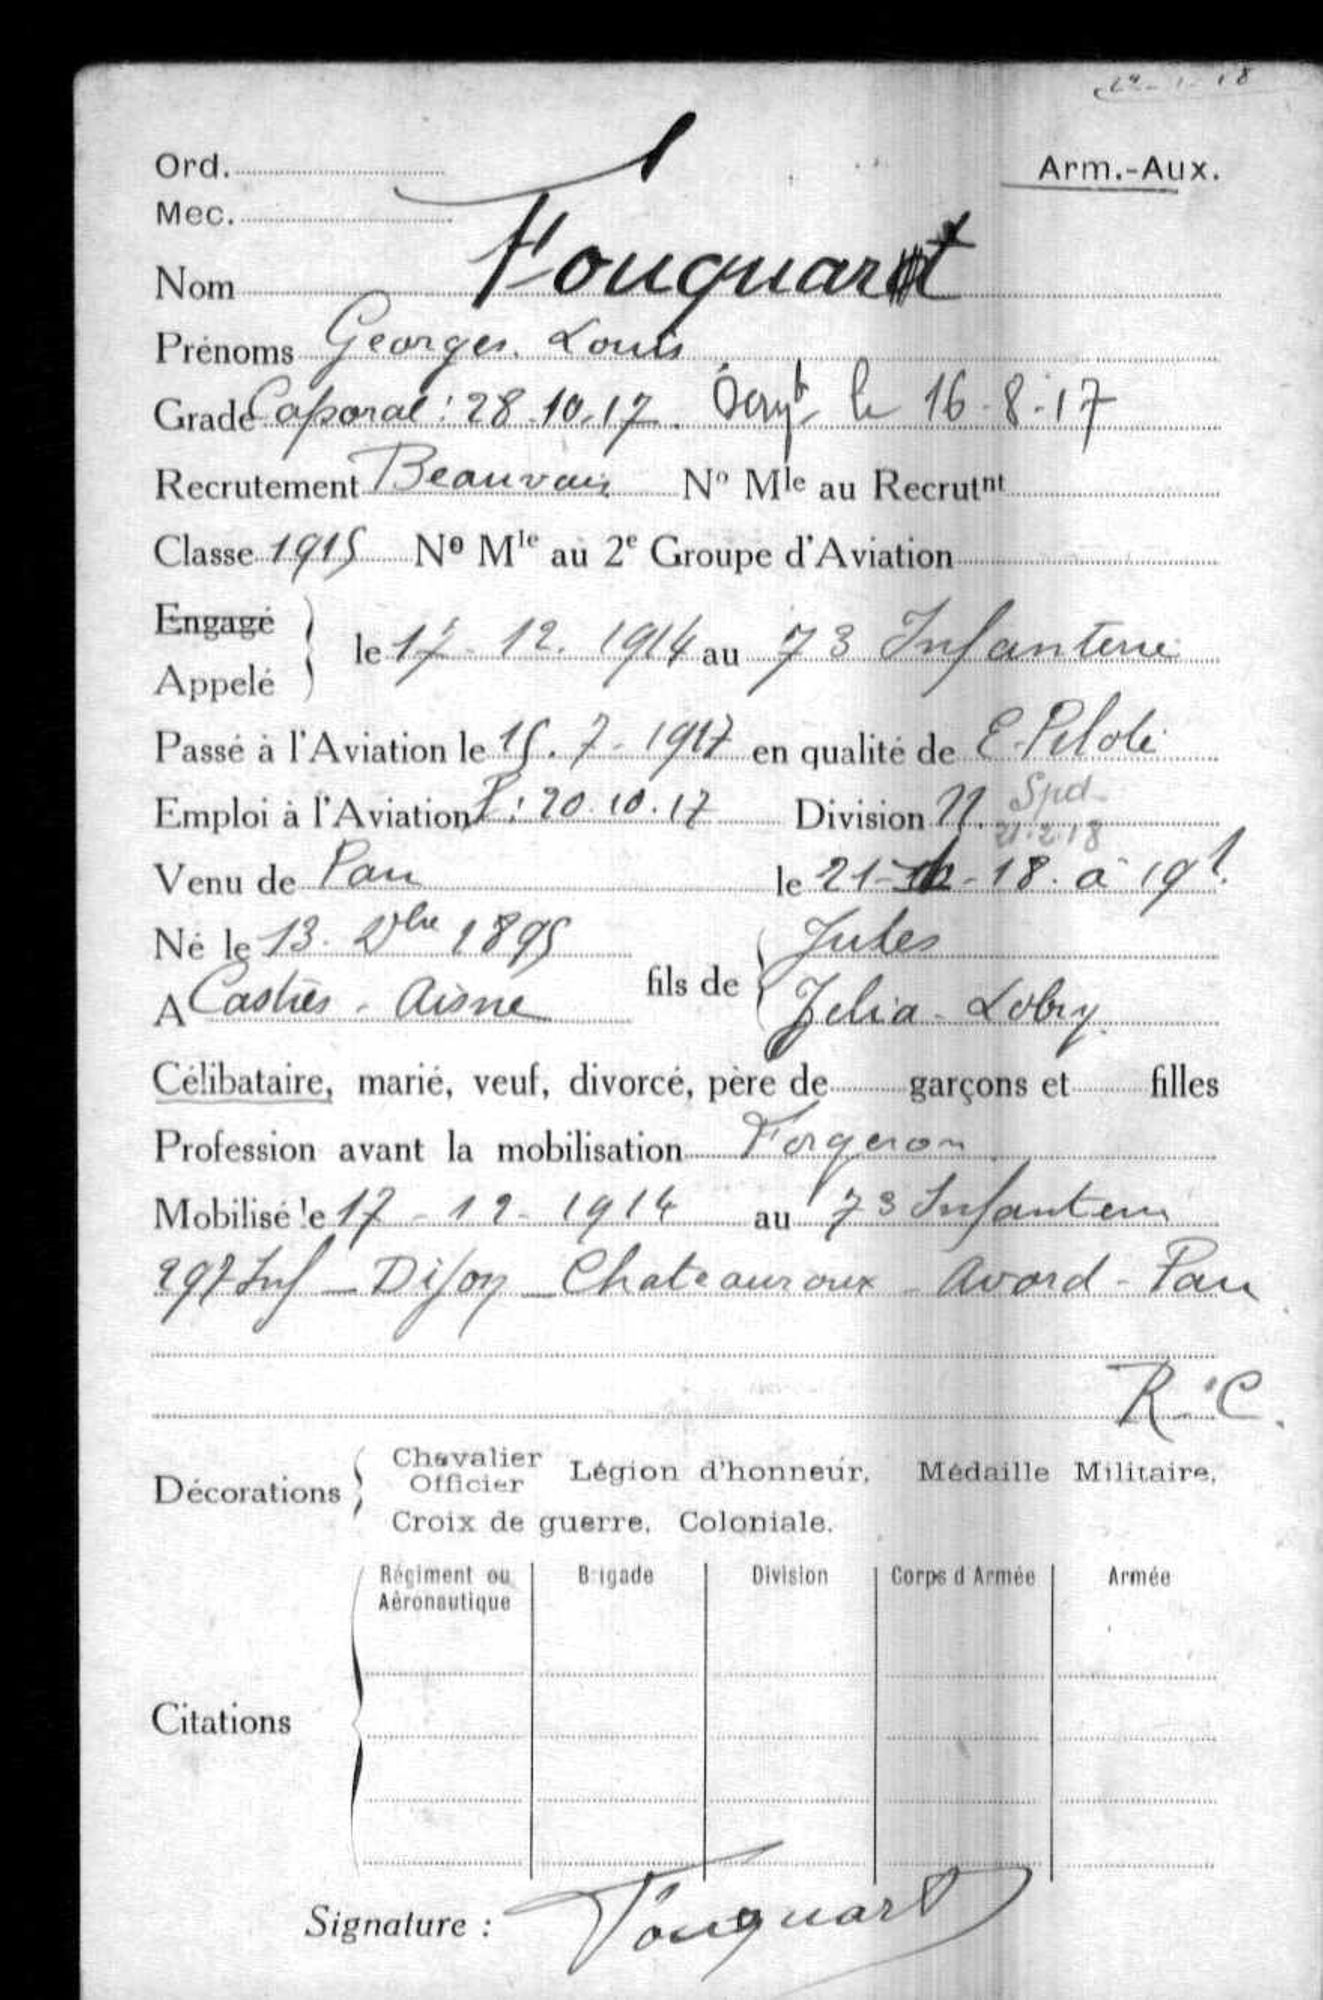 Ord.
Arm.-Aux.
Mec.
Nom Fouquart
Prénoms Georges Louis
Grade Caporal : 28.10.17. Sergt le 16-8-17
Recrutement Beauvais No Mle au Recrutnt
Classe 1915 No Mle au 2e Groupe d'Aviation
Engagé
Appelé
le 17-12.1914 au 73 Infanterie
Passé à l'Aviation le 15.7-1917 en qualité de E. Pilote
Spd
Emploi à l'Aviation P: 20.10.17 Division N.
21.2.18
Venu de Pau le 21- -18. à 19h.
Né le 13. Xbre 1895
fils de Jules
A Castres - Aisne
Zelia - Lobry
Célibataire, marié, veuf, divorcé, père de garçons et filles
Profession avant la mobilisation Forgeron
Mobilisé le 17-12-1914 au 73 Infanterie
297 Inf - Dijon - Chateauroux - Avord - Pau
R.C.
Décorations Chevalier Officier Légion d'honneur, Médaille Militaire,
Croix de guerre, Coloniale.
Régiment ou Aéronautique Brigade Division Corps d'Armée Armée
Citations
Signature : Fouquart